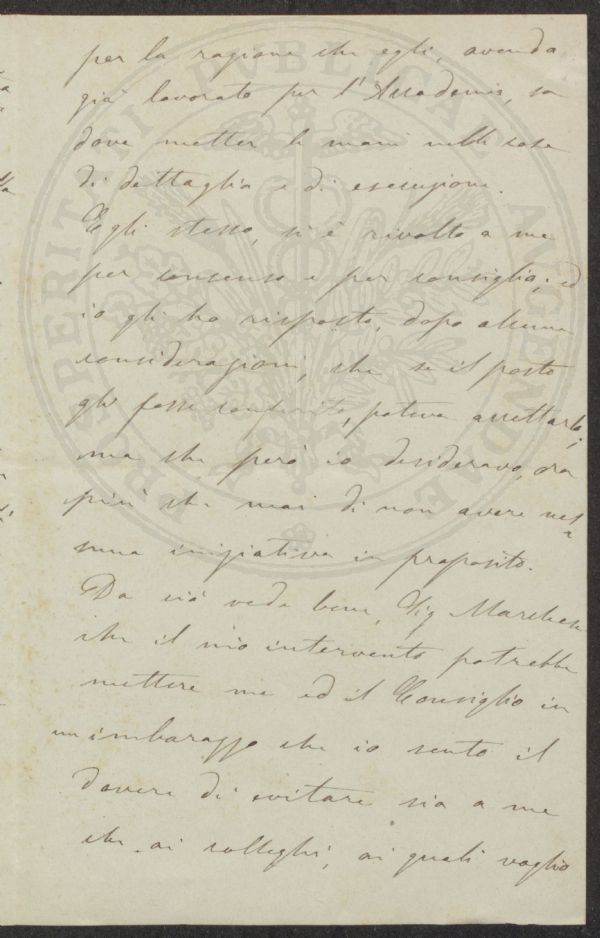 per la ragione che egli, avendo
già lavorato per l'Accademia, sa
dove metter le mani nelle cose
di dettaglio e di esecuzione.
Egli stesso, si è rivolto a me
per consenso e per consiglio; ed
io gli ho risposto, dopo alcune
considerazioni, che se il posto
gli fosse conferito, poteva accettarlo;
ma che però io desideravo, ora
più che mai di non avere nes=
suna iniziativa in proposito.
Da ciò vede bene, Sig Marchese
che il mio intervento potrebbe
mettere me ed il Consiglio in
un imbarazzo che io sento il
dovere di evitare sia a me
che ai colleghi, ai quali voglio
PROSPERITATI PUBLICAE AUGENDAE